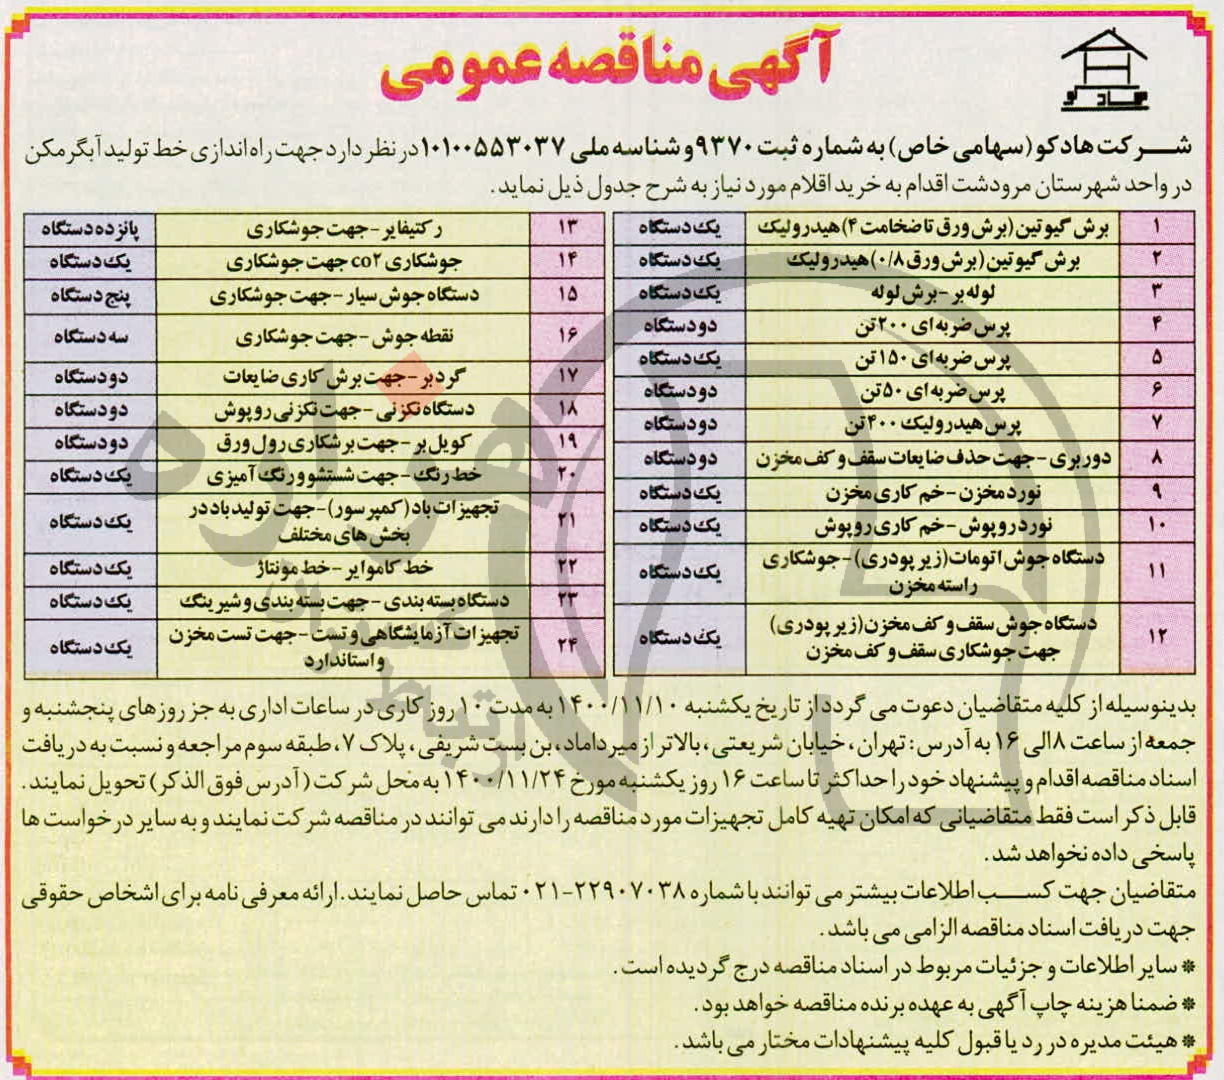 آگهی مناقصه عمومی
هادکو
شرکت هادکو (سهامی خاص) به شماره ثبت ۹۳۷۰ و شناسه ملی ۱۰۱۰۰۵۵۳۰۳۷ در نظر دارد جهت راه اندازی خط تولید آبگرمکن
در واحد شهرستان مرودشت اقدام به خرید اقلام مورد نیاز به شرح جدول ذیل نماید.
۱ برش گیوتین (برش ورق تا ضخامت ۴) هیدرولیک یک دستگاه
۲ برش گیوتین (برش ورق ۰/۸) هیدرولیک یک دستگاه
۳ لوله بر - برش لوله یک دستگاه
۴ پرس ضربه ای ۲۰۰ تن دو دستگاه
۵ پرس ضربه ای ۱۵۰ تن یک دستگاه
۶ پرس ضربه ای ۵۰ تن دو دستگاه
۷ پرس هیدرولیک ۴۰۰ تن دو دستگاه
۸ دوربری - جهت حذف ضایعات سقف و کف مخزن دو دستگاه
۹ نورد مخزن - خم کاری مخزن یک دستگاه
۱۰ نورد روپوش - خم کاری روپوش یک دستگاه
۱۱ دستگاه جوش اتومات (زیر پودری) - جوشکاری
راسته مخزن یک دستگاه
۱۲ دستگاه جوش سقف و کف مخزن (زیر پودری)
جهت جوشکاری سقف و کف مخزن یک دستگاه
۱۳ رکتیفایر - جهت جوشکاری پانزده دستگاه
۱۴ جوشکاری co۲ جهت جوشکاری یک دستگاه
۱۵ دستگاه جوش سیار - جهت جوشکاری پنج دستگاه
۱۶ نقطه جوش - جهت جوشکاری سه دستگاه
۱۷ گردبر - جهت برش کاری ضایعات دو دستگاه
۱۸ دستگاه نکزنی - جهت نکزنی روپوش دو دستگاه
۱۹ کویل بر - جهت برشکاری رول ورق دو دستگاه
۲۰ خط رنگ - جهت شستشو و رنگ آمیزی یک دستگاه
۲۱ تجهیزات باد (کمپرسور) - جهت تولید باد در
بخش های مختلف یک دستگاه
۲۲ خط کاموایر - خط مونتاژ یک دستگاه
۲۳ دستگاه بسته بندی - جهت بسته بندی و شیرینگ یک دستگاه
۲۴ تجهیزات آزمایشگاهی و تست - جهت تست مخزن
و استاندارد یک دستگاه
بدینوسیله از کلیه متقاضیان دعوت می گردد از تاریخ یکشنبه ۱۴۰۰/۱۱/۱۰ به مدت ۱۰ روز کاری در ساعات اداری به جز روزهای پنجشنبه و
جمعه از ساعت ۸ الی ۱۶ به آدرس: تهران، خیابان شریعتی، بالاتر از میرداماد، بن بست شریفی، پلاک ۷، طبقه سوم مراجعه و نسبت به دریافت
اسناد مناقصه اقدام و پیشنهاد خود را حداکثر تا ساعت ۱۶ روز یکشنبه مورخ ۱۴۰۰/۱۱/۲۴ به محل شرکت (آدرس فوق الذکر) تحویل نمایند.
قابل ذکر است فقط متقاضیانی که امکان تهیه کامل تجهیزات مورد مناقصه را دارند می توانند در مناقصه شرکت نمایند و به سایر درخواست ها
پاسخی داده نخواهد شد.
متقاضیان جهت کسب اطلاعات بیشتر می توانند با شماره ۲۲۹۰۷۰۳۸-۰۲۱ تماس حاصل نمایند. ارائه معرفی نامه برای اشخاص حقوقی
جهت دریافت اسناد مناقصه الزامی می باشد.
* سایر اطلاعات و جزئیات مربوط در اسناد مناقصه درج گردیده است.
* ضمنا هزینه چاپ آگهی به عهده برنده مناقصه خواهد بود.
* هیئت مدیره در رد یا قبول کلیه پیشنهادات مختار می باشد.